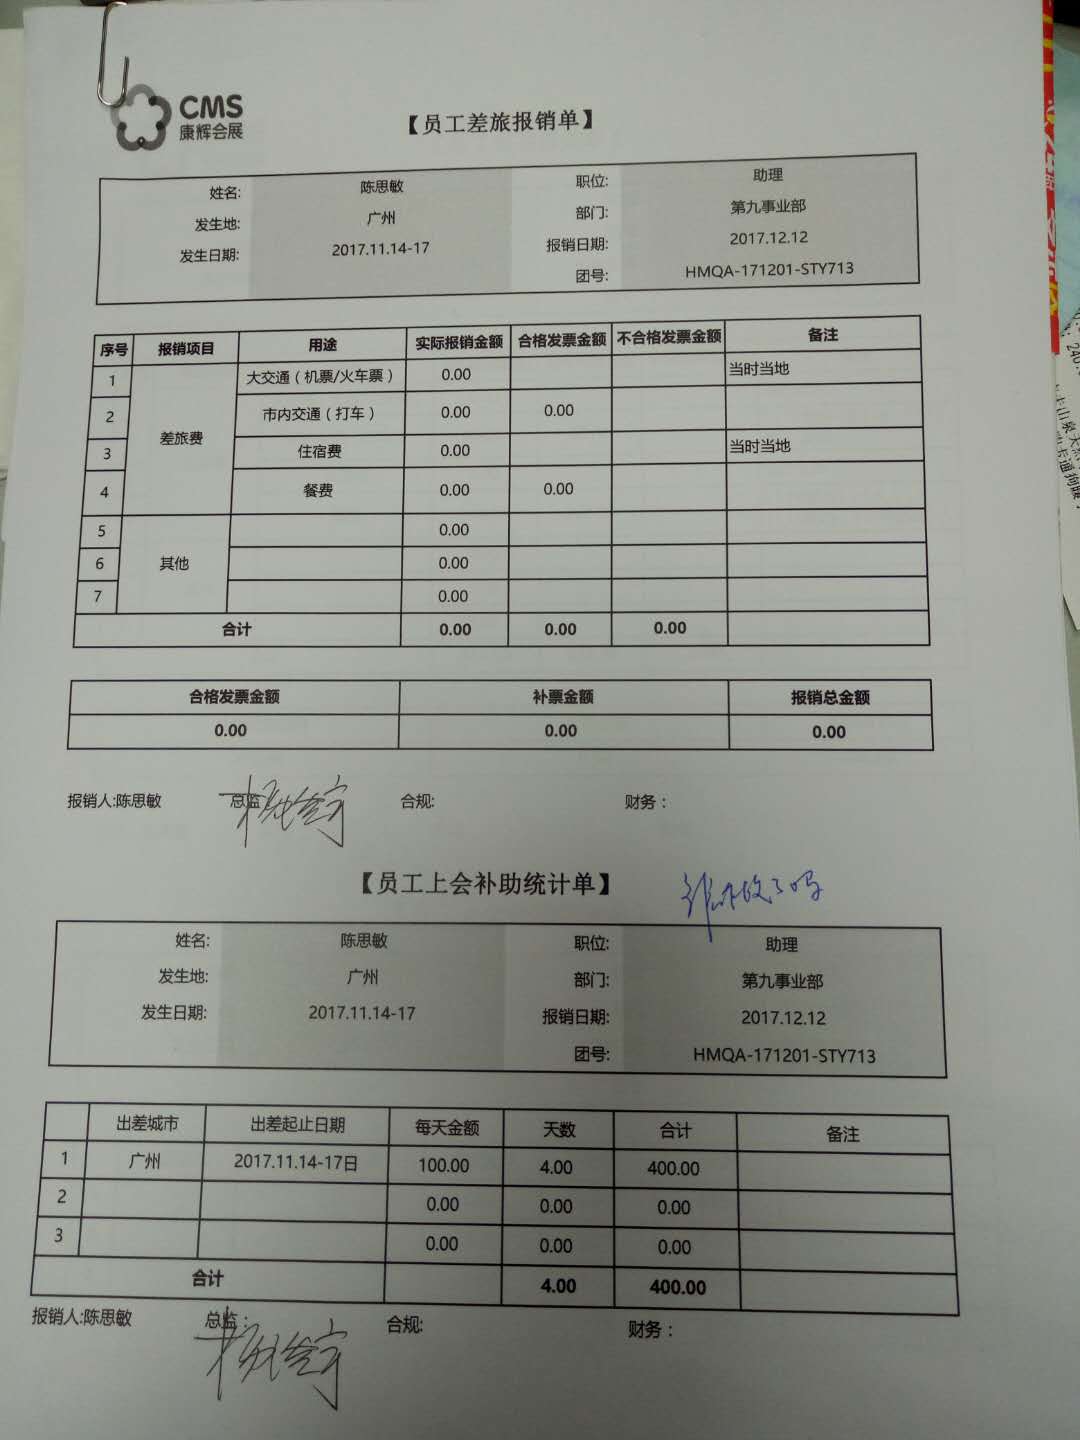 CMS
康辉会展
【员工差旅报销单】
姓名: 陈思敏 职位: 助理
发生地: 广州 部门: 第九事业部
发生日期: 2017.11.14-17 报销日期: 2017.12.12
团号: HMQA-171201-STY713
序号 报销项目 用途 实际报销金额 合格发票金额 不合格发票金额 备注
1 差旅费 大交通（机票/火车票） 0.00 当时当地
2 市内交通（打车） 0.00 0.00
3 住宿费 0.00 当时当地
4 餐费 0.00 0.00
5 其他 0.00
6 0.00
7 0.00
合计 0.00 0.00 0.00
合格发票金额 补票金额 报销总金额
0.00 0.00 0.00
报销人:陈思敏 总监 合规: 财务：
【员工上会补助统计单】
姓名: 陈思敏 职位: 助理
发生地: 广州 部门: 第九事业部
发生日期: 2017.11.14-17 报销日期: 2017.12.12
团号: HMQA-171201-STY713
出差城市 出差起止日期 每天金额 天数 合计 备注
1 广州 2017.11.14-17日 100.00 4.00 400.00
2 0.00 0.00 0.00
3 0.00 0.00 0.00
合计 4.00 400.00
报销人:陈思敏 总监： 合规: 财务：